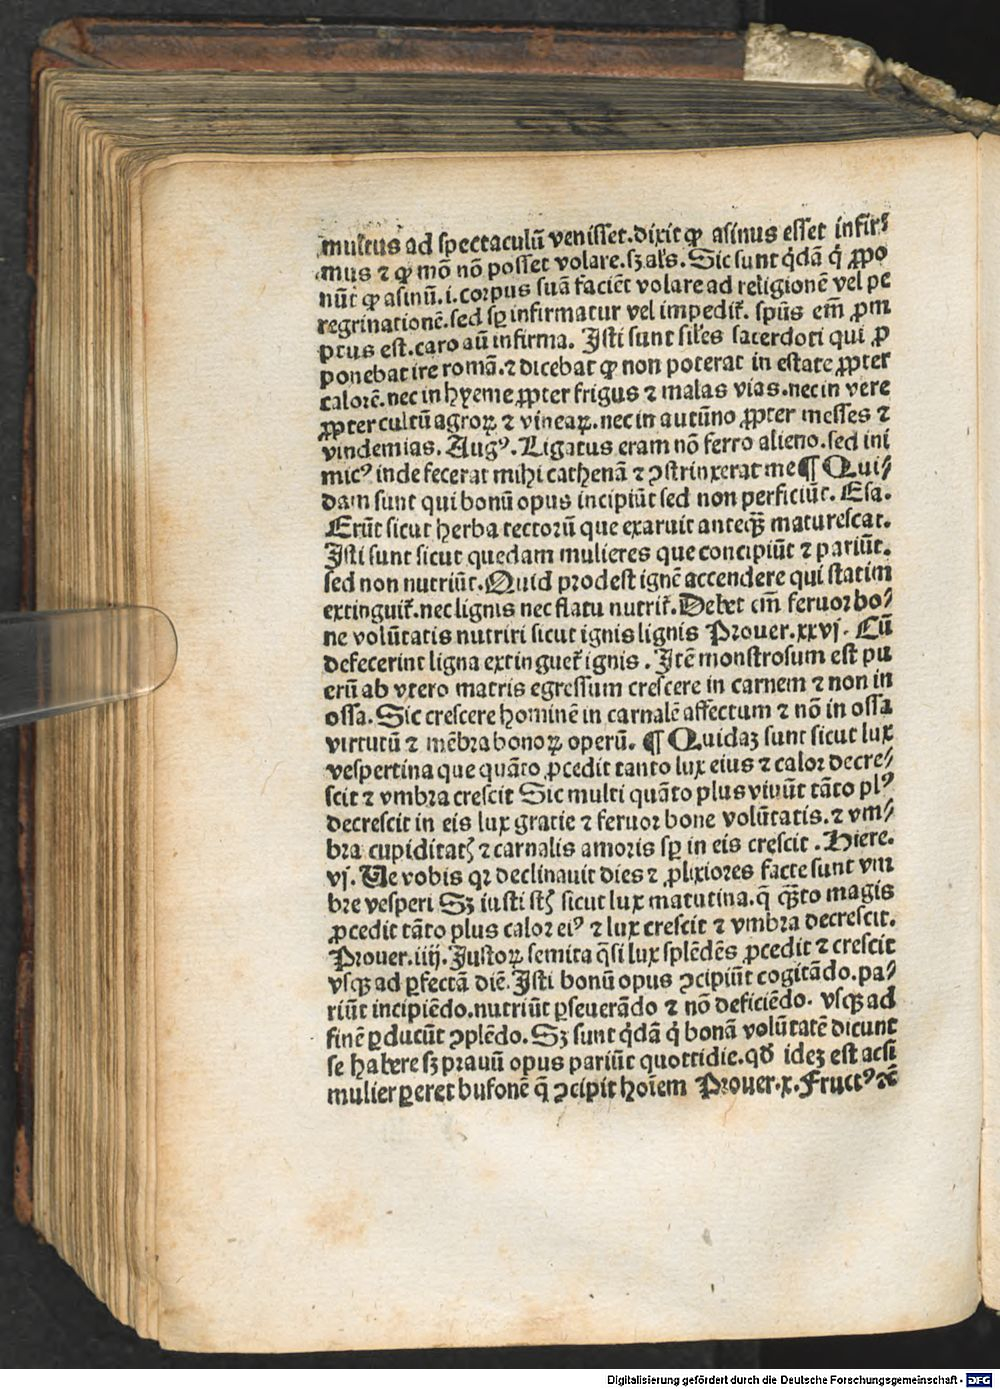 multus ad spectaculū venisset.dixit ꝙ asinus esset infir⸗
mus ⁊ ꝙ mō nō posset volare.sꝫ al's. Sic sunt q̇dā q̇ ꝓpo
nūt ꝙ asinū.i.corpus suā faciēt volare ad religionē vel pe
regrinationē.sed sꝑ infirmatur vel impedit̄. spūs em̄ ꝓm
ptus est.caro aū infirma. Isti sunt sil'es sacerdoti qui ꝓ
ponebat ire romā.⁊ dicebat ꝙ non poterat in estate ꝓpter
calorē.nec in hyeme ꝓpter frigus ⁊ malas vias.nec in vere
ꝓpter cultū agroꝝ ⁊ vineaꝝ.nec in autūno ꝓpter messes ⁊
vindemias. Augꝰ. Ligatus eram nō ferro alieno.sed ini
micꝰ inde fecerat mihi cathenā ⁊ ↄstrinxerat me ¶ Qui⸗
dam sunt qui bonū opus incipiūt sed non perficiūt. Esa.
Erūt sicut herba tectorū que exaruit anteq̄ꝫ maturescat.
Isti sunt sicut quedam mulieres que concipiūt ⁊ pariūt.
sed non nutriūt.Quid prodest ignē accendere qui statim
extinguit̄.nec lignis nec flatu nutrit̄.Debet em̄ feruor bo⸗
ne volūtatis nutriri sicut ignis lignis Prouer.xxvj. Cū
defecerint ligna extinguet̄ ignis. Itē monstrosum est pu
erū ab vtero matris egressum crescere in carnem ⁊ non in
ossa. Sic crescere hominē in carnalē affectum ⁊ nō in ossa
virtutū ⁊ mēbra bonoꝝ operū. ¶ Quidaꝫ sunt sicut lux
vespertina que quāto ꝓcedit tanto lux eius ⁊ calor decre⸗
scit ⁊ vmbra crescit Sic multi quāto plus viuūt tāto plꝰ
decrescit in eis lux gratie ⁊ feruor bone volūtatis.⁊ vm⸗
bra cupiditatꝭ ⁊ carnalis amoris sꝑ in eis crescit. Hiere.
vj. Ve vobis qꝛ declinauit dies ⁊ ꝓlixiores facte sunt vm
bre vesperi Sꝫ iusti stꝭ sicut lux matutina.q̄ q̄ꝫto magis
ꝓcedit tāto plus calor eiꝰ ⁊ lux crescit ⁊ vmbra decrescit.
Prouer.iiij. Iustoꝝ semita q̄si lux splēdēs ꝓcedit ⁊ crescit
vsqꝫ ad ꝑfectā diē. Isti bonū opus ↄcipiūt cogitādo.pa⸗
riūt incipiēdo.nutriūt ꝑseuerādo ⁊ nō deficiēdo. vsqꝫ ad
finē ꝑducūt ↄplēdo. Sꝫ sunt q̇dā q̇ bonā volūtatē dicunt
se habere sꝫ prauū opus pariūt quottidie.qd̄ ideꝫ est acsi
mulier ꝑeret bufonē q̄ ↄcipit hoīem Prouer.x.Fructꝰ ⁊c̄
Digitalisierung gefördert durch die Deutsche Forschungsgemeinschaft - DFG